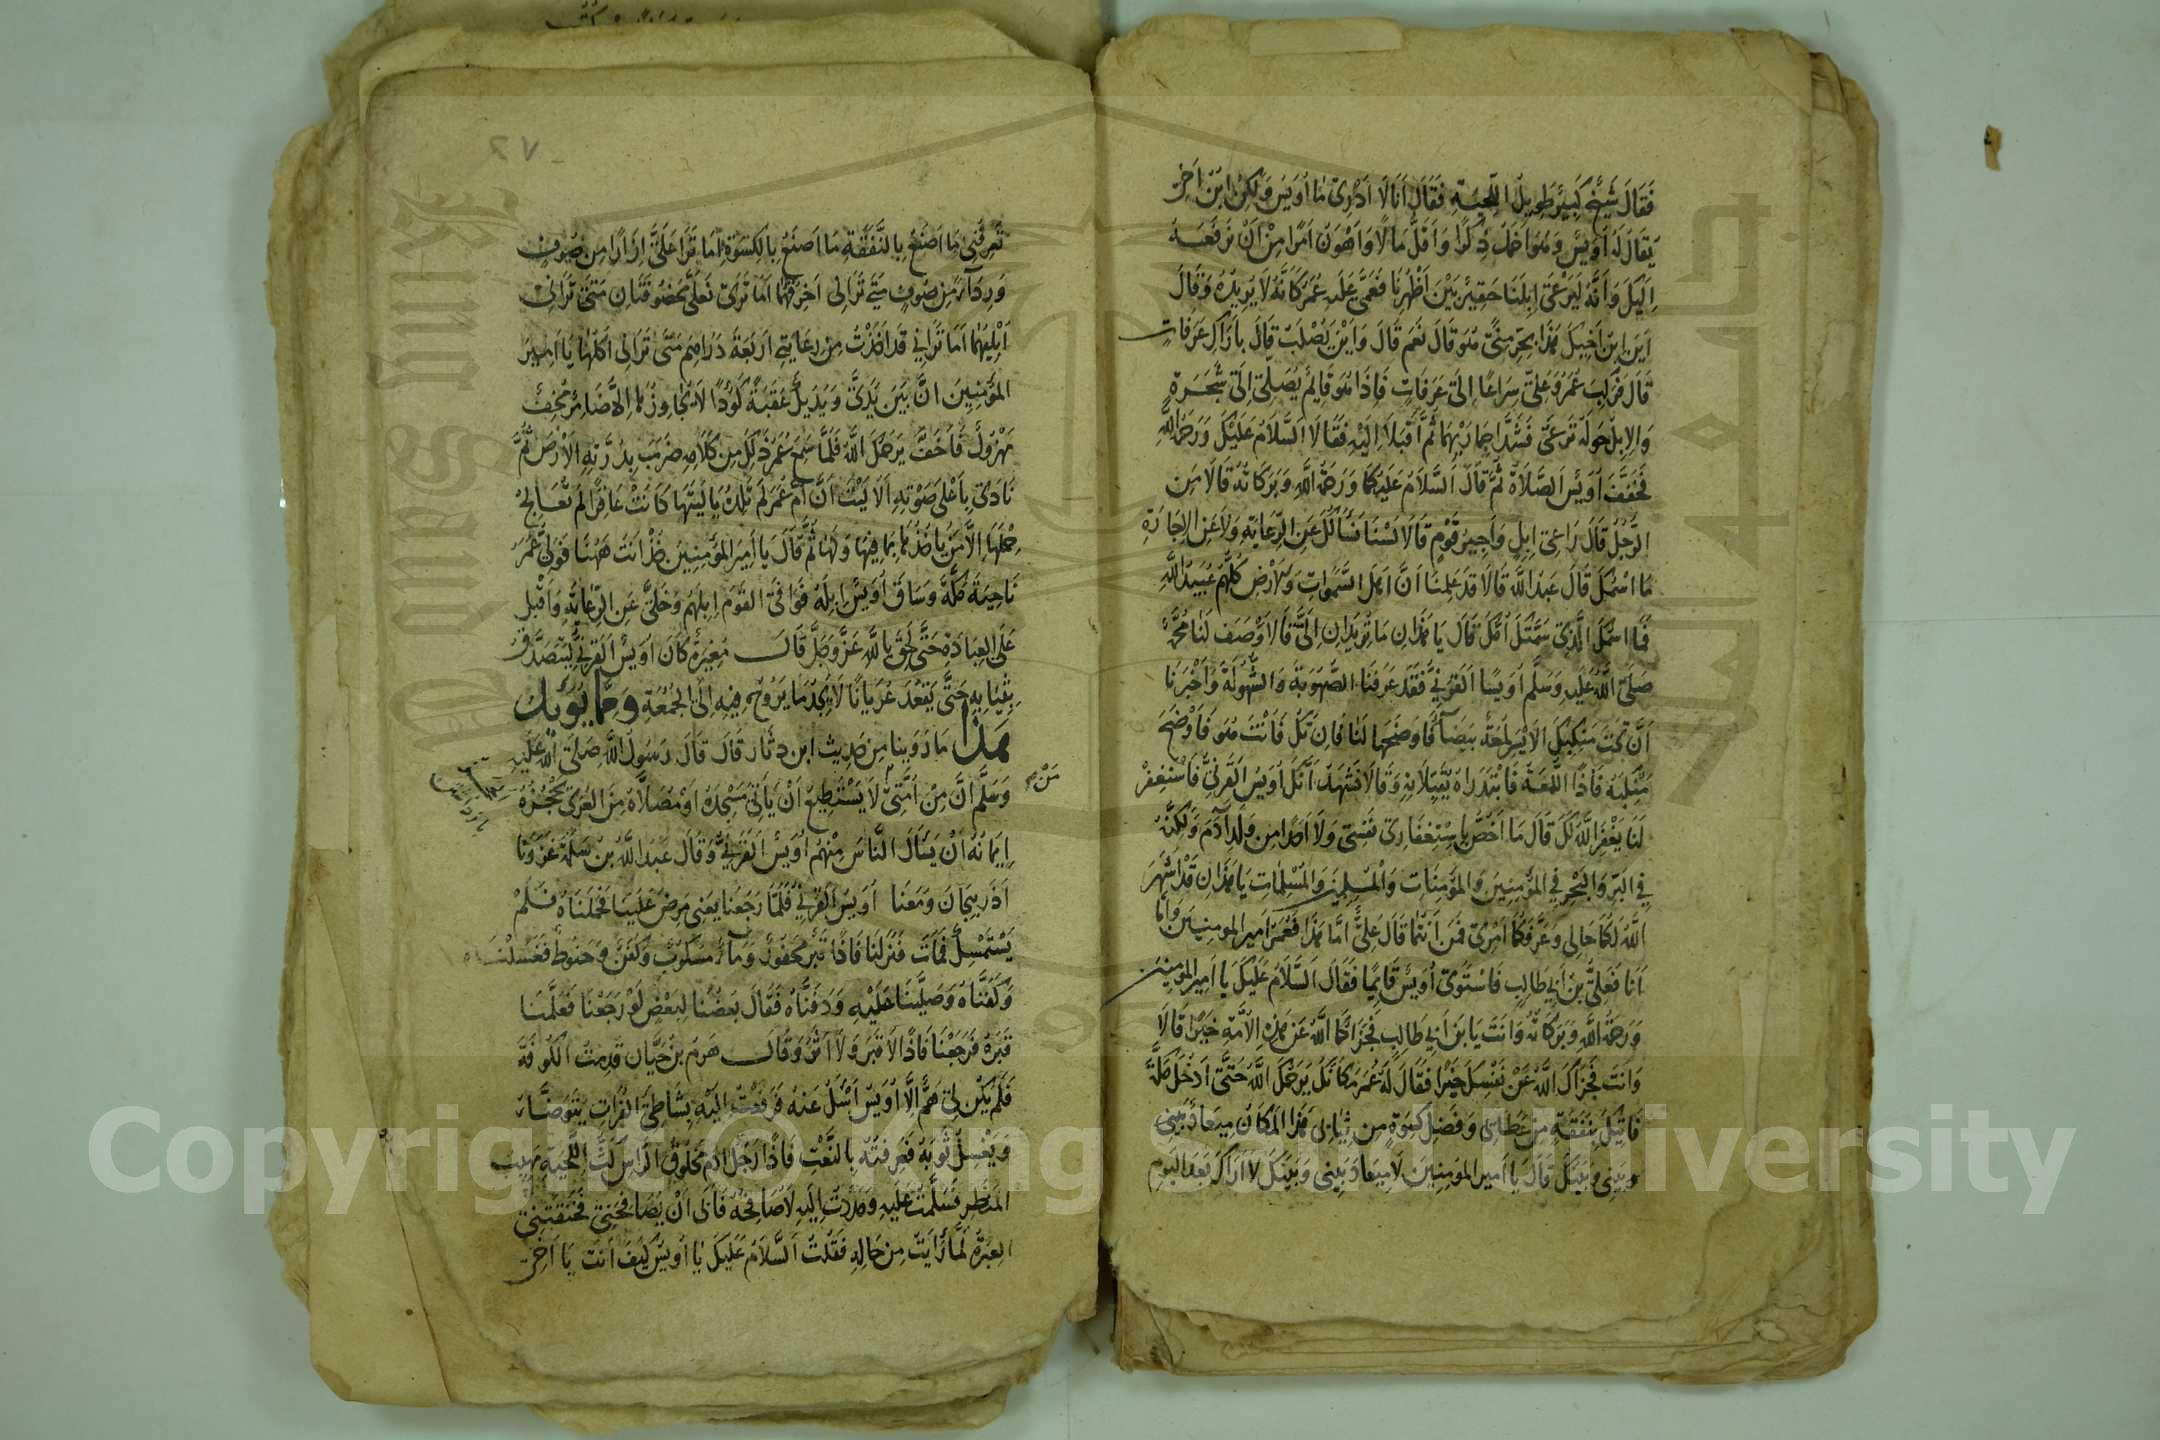 فَقَالَ شَيْخٌ كَبِيْرٌ طَوِيلُ اللِّحْيَةِ فَقَالَ أَنَا لَا أَدْرِى مَا أُوَيْسٌ وَلَكِنْ ابْنُ أَخِى
يُقَالُ لَهُ أُوَيْسٌ وَهُوَ أَخْمَلُ ذِكْرًا وَأَقَلُّ مَالًا وَأَهْوَنُ أَمْرًا مِنْ أَنْ نَرْفَعَهُ
إِلَيْكَ وَأَنَّهُ لَيَرْعَى إِبِلَنَا حَقِيْرٌ بَيْنَ أَظْهُرِنَا فَعَمَّى عَلَيْهِ عُمَرُ كَأَنَّهُ لَا يُرِيْدُهُ وَقَالَ
أَيْنَ ابْنُ أَخِيكَ هَذَا بِحَرَمِنَا هُوَ قَالَ نَعَمْ قَالَ وَأَيْنَ يُصَابُ قَالَ بِأَرَاكِ عَرَفَاتٍ
قَالَ فَرَكِبَ عُمَرُ وَعَلِىٌّ سِرَاعًا إِلَى عَرَفَاتٍ فَإِذَا هُوَ قَائِمٌ يُصَلِّى إِلَى شَجَرَةٍ
وَالإِبِلُ حَوْلَهُ تَرْعَى فَشَدَّا حِمَارَيْهِمَا ثُمَّ أَقْبَلَا إِلَيْهِ فَقَالَا السَّلَامُ عَلَيْكَ وَرَحْمَةُ اللَّهِ
فَخَفَّفَ أُوَيْسٌ الصَّلَاةَ ثُمَّ قَالَ السَّلَامُ عَلَيْكُمَا وَرَحْمَةُ اللَّهِ وَبَرَكَاتُهُ قَالَا مَنِ
الرَّجُلُ قَالَ رَاعِى إِبِلٍ وَأَجِيرُ قَوْمٍ قَالَا لَسْنَا نَسْأَلُكَ عَنِ الرِّعَايَةِ وَلَا عَنِ الإِجَارَةِ
مَا اسْمُكَ قَالَ عَبْدُ اللَّهِ قَالَا قَدْ عَلِمْنَا أَنَّ أَهْلَ السَّمَوَاتِ وَالأَرْضِ كُلَّهُمْ عَبِيدُ اللَّهِ
فَمَا اسْمُكَ الَّذِى سَمَّتْكَ أُمُّكَ قَالَ يَا هَذَانِ مَا تُرِيدَانِ إِلَىَّ قَالَا وَصَفَ لَنَا مُحَمَّدٌ
صَلَّى اللَّهُ عَلَيْهِ وَسَلَّمَ أُوَيْسًا القَرَنِىَّ فَقَدْ عَرَفْنَا الصُّهُوبَةَ وَالشُّهُولَةَ وَأَخْبَرَنَا
أَنَّ تَحْتَ مَنْكِبِكَ الأَيْسَرِ لَمْعَةً بَيْضَاءَ فَأَوْضِحْهَا لَنَا فَإِنْ تَكُ فَأَنْتَ هُوَ فَأَوْضَحَ
مَنْكِبَهُ فَإِذَا اللَّمْعَةُ فَابْتَدَرَاهُ يُقَبِّلَانِهِ وَقَالَا نَشْهَدُ أَنَّكَ أُوَيْسٌ القَرَنِىُّ فَاسْتَغْفِرْ
لَنَا يَغْفِرِ اللَّهُ لَكَ قَالَ مَا أَخُصُّ بِاسْتِغْفَارِى نَفْسِى وَلَا أَحَدًا مِنْ وَلَدِ آدَمَ وَلَكِنَّهُ
فِى البَرِّ وَالبَحْرِ فِى المُؤْمِنِينَ وَالمُؤْمِنَاتِ وَالمُسْلِمِينَ وَالمُسْلِمَاتِ يَا هَذَانِ قَدْ أَشْهَرَ
اللَّهُ لَكُمَا حَالِى وَعَرَّفَكُمَا أَمْرِى فَمَنْ أَنْتُمَا قَالَ عَلِىٌّ أَمَّا هَذَا فَعُمَرُ أَمِيرُ المُومِنِينَ وَأَمَّا
أَنَا فَعَلِىُّ بْنُ أَبِى طَالِبٍ فَاسْتَوَى أُوَيْسٌ قَايِمًا فَقَالَ السَّلَامُ عَلَيْكَ يَا أَمِيرَ المُؤمِنِينَ
وَرَحْمَةُ اللَّهِ وَبَرَكَاتُهُ وَأَنْتَ يَا بْنَ أَبِى طَالِبٍ فَجَزَاكُمَا اللَّهُ عَنْ هَذِهِ الأُمَّةِ خَيْرًا قَالَا
وَأَنْتَ فَجَزَاكَ اللَّهُ عَنْ نَفْسِكَ خَيْرًا فَقَالَ لَهُ عُمَرُ مَكَانَكَ يَرْحَمُكَ اللَّهُ حَتَّى أَدْخُلَ مَكَّةَ
فَآتِيكَ بِنَفَقَةٍ مِنْ عَطَائِى وَفَضْلِ كِسْوَةٍ مِنْ ثِيَابِى هَذَا المَكَانُ مِيعَادٌ بَيْنِى
بَيْنِى وَبَيْنَكَ قَالَ يَا أَمِيرَ المُومِنِينَ لَا مِيعَادَ بَيْنِى وَبَيْنَكَ لَا أَرَاكَ بَعْدَ اليَومِ
٢٧
تُعَرِّفُنِى مَا أَصْنَعُ بِالنَّفَقَةِ مَا أَصْنَعُ بِالكِسْوَةِ أَمَا تَرَا عَلَىَّ إِزَارًا مِنْ صُوفٍ
وَرِدَاءً مِنْ صُوفٍ مَتَى تَرَانِى أَخْرِقُهُمَا أَمَا تَرَى نَعْلَىَّ مَخْصُوفَتَانِ مَتَى تَرَانِى
أُبْلِيهُمَا أَمَا تَرَانِى قَدْ أَخَذْتُ مِنْ رِعَايَتِى أَرْبَعَةَ دَرَاهِمَ مَتَى تَرَانِى آكُلُهَا يَا أَمِيرَ
المُؤْمِنِينَ انَّ بَيْنَ يَدَىَّ وَيَدَيْكَ عَقَبَةً كَؤُدًا لَا يُجَاوِزُهَا إِلَّا ضَامِرٌ مُخِفٌّ
مَهْزُولٌ فَأَخِفَّ يَرْحَمُكَ اللَّهُ فَلَمَّا سَمِعَ عُمَرُ ذَلِكَ مِنْ كَلَامِهِ ضَرَبَ بِدُرَّتِهِ الأَرْضَ ثُمَّ
نَادَى بِأَعْلَى صَوْتِهِ أَلَا لَيْتَ أَنَّ أُمَّ عُمَرَ لَمْ تَلِدْهُ يَا لَيْتَهَا كَانَتْ عَاقِرًا لَمْ تُعَالِجْ
حَمْلَهَا أَلَا مَنْ يَأخُذُهَا بِمَا فِيهَا وَلَهَا ثُمَّ قَالَ يَا أَمِيرَ المُؤْمِنِينَ خُذْ أَنْتَ هَهُنَا فَوَلَّى عُمَرُ
نَاحِيَةَ مَكَّةَ وَسَاقَ أُوَيْسٌ إِبِلَهُ فَوَافَى القَوْمَ إِبِلَهُمْ وَخَلَّى عَنِ الرِّعَايَةِ وَأَقْبَلَ
عَلَى العِبَادَةِ حَتَّى لَحِقَ بِاللَّهِ عَزَّ وَجَلَّ قَالَ مُغِيرَةُ كَانَ أُوَيْسٌ القَرَنِىُّ لَيَتَصَدَّقُ
بِثِيَابِهِ حَتَّى يَقْعُدَ عُرْيَانًا لَا يَجِدُ مَا يَرُوحُ فِيهِ إِلَى الجُمُعَةِ وَمِمَّا يُؤَيِّدُ
هَذَا مَا رَوَينَا مِنْ حَدِيثِ ابْنِ دِثَارٍ قَالَ قَالَ رَسُولُ اللَّهِ صَلَّى اللَّهُ عَلَيْهِ
مَنْ
وَسَلَّمَ انَّ مِنْ أُمَّتِى لَا يَسْتَطِيعُ أَنْ يَأْتِىَ مَسْجِدَهُ أَوْ مُصَلَّاهُ مِنَ العُرْىِ يَحْجُزُهُ
إِيمَانُهُ أَنْ يَسْأَلَ النَّاسَ مِنْهُمْ أُوَيْسٌ القَرَنِىُّ وَقَالَ عَبْدُ اللَّهِ بْنُ سَلَمَةَ غَزَوْنَا
أَذْرَبِيجَانَ وَمَعَنَا أُوَيْسٌ القَرَنِىُّ فَلَمَّا رَجَعْنَا يَعْنِى مَرِضَ عَلَيْنَا فَحَمَلْنَاهُ فَلَمْ
يَسْتَمْسِكْ فَمَاتَ فَنَزَلْنَا فَإِذَا قَبْرٌ مَحْفُورٌ وَمَاءٌ مَسْكُوبٌ وَكَفَنٌ وَحَنُوطٌ فَغَسَلْنَاهُ
وَكَفَّنَّاهُ وَصَلَّيْنَا عَلَيْهِ وَدَفَنَّاهُ فَقَالَ بَعْضُنَا لِبَعْضٍ لَوْ رَجَعْنَا فَعَلَّمْنَا
قَبْرَهُ فَرَجَعْنَا فَإِذَا لَا قَبْرَ وَلَا أَثَرَ وَقَالَ هَرِمُ بْنُ حَيَّانَ قَدِمْتُ الكُوفَةَ
فَلَمْ يَكُنْ لِى هَمٌّ إِلَّا أُوَيْسٌ أَسْئَلُ عَنْهُ فَدُفِعْتُ إِلَيْهِ بِشَاطِىِ الفُرَاتِ يَتَوَضَّأُ
وَيَغْسِلُ ثَوْبَهُ فَعَرَفْتُهُ بِالنَّعْتِ فَإِذَا رَجُلٌ آدَمُ مَحْلُوقُ الرَّاسِ كَثُّ اللِّحْيَةِ مَهِيبُ
المَنْظَرِ فَسَلَّمْتُ عَلَيْهِ وَمَدَدْتُ إِلَيْهِ لَأُصَافِحَهُ فَأَبَى أَنْ يُصَافِحَنِى فَخَنَقَتْنِى
العَبْرَةُ لَمَّا رَأَيْتُ مِنْ حَالِهِ فَقُلْتُ السَّلَامُ عَلَيْكَ يَا أُوَيْسُ كَيْفَ أَنْتَ يَا أَخِى
Copyright © King Saud University